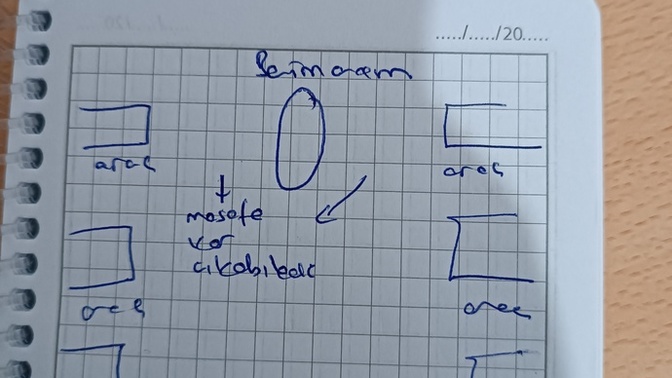 ...../...../20.....
Benim aracım
araç
araç
mesafe
var
çıkabilecek
araç
araç